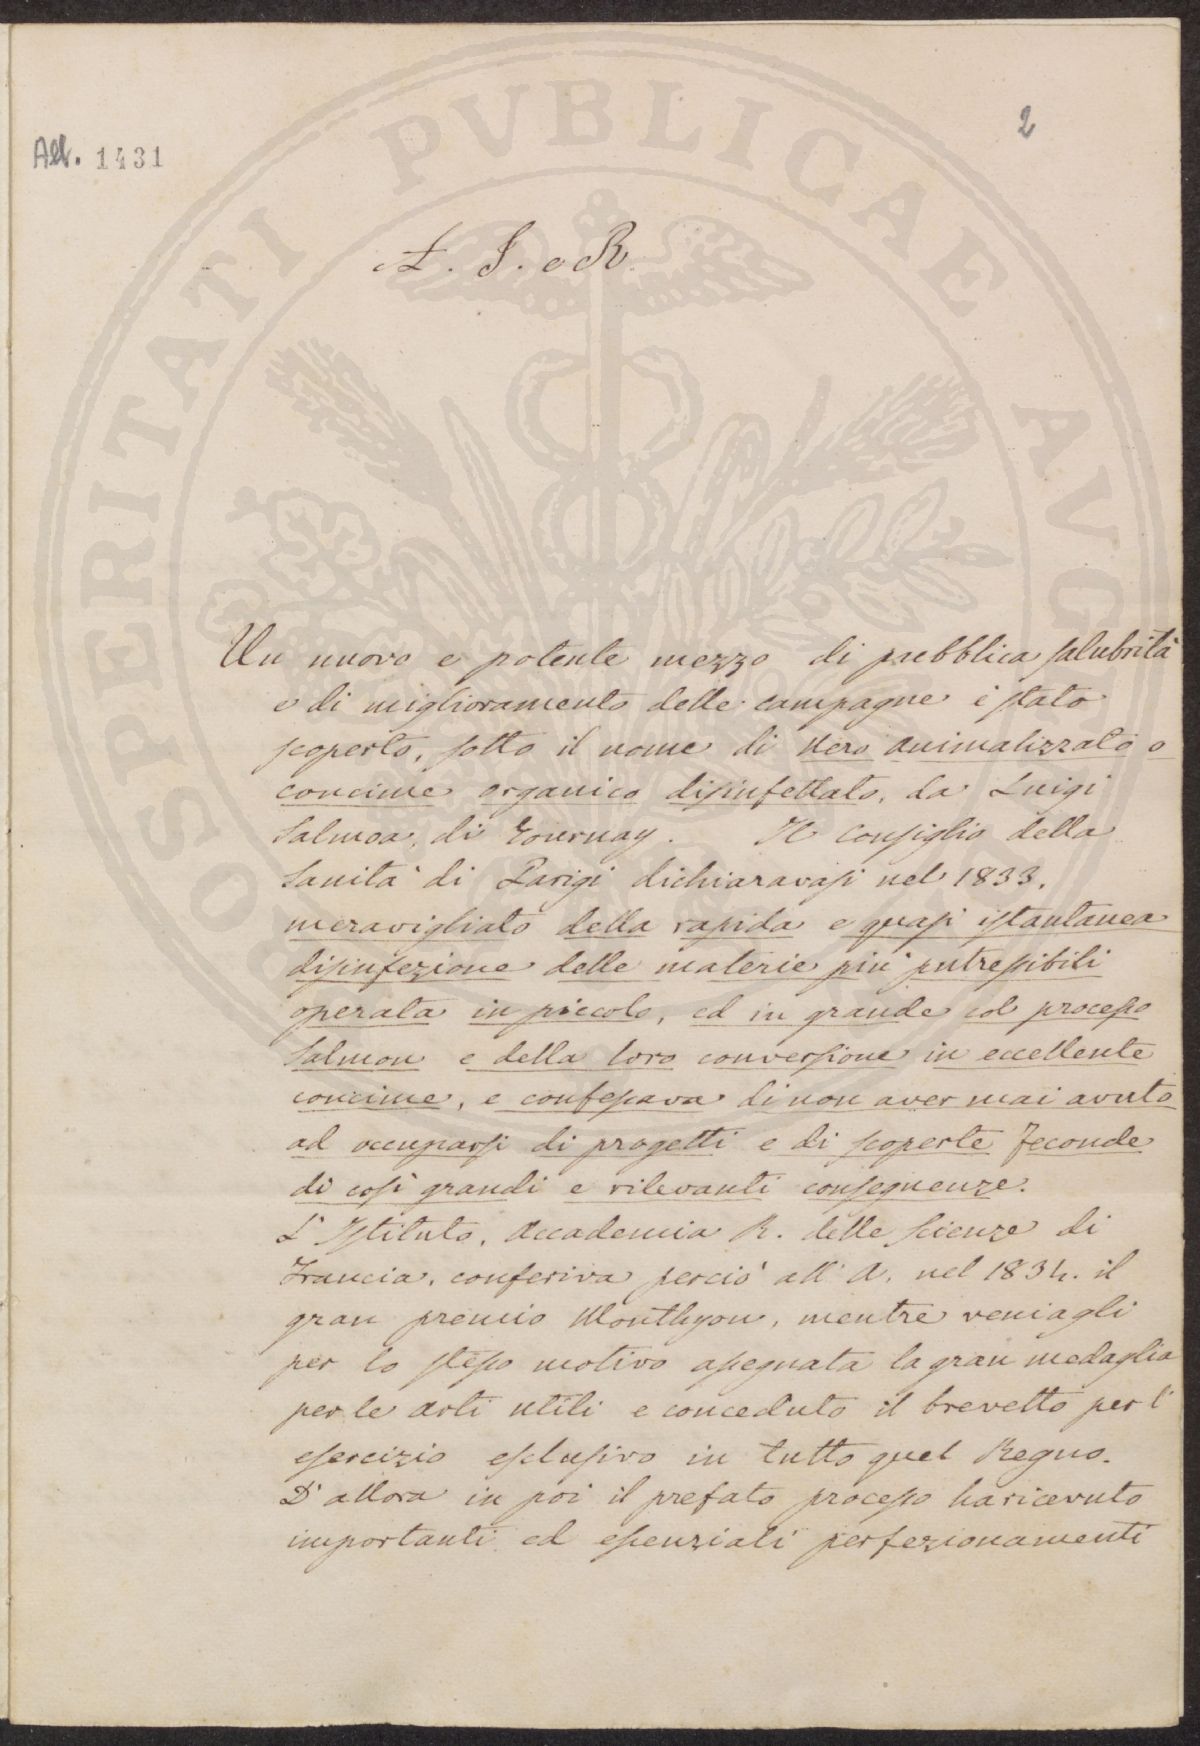 2
All. 1431
A. I. e R.
Un nuovo e potente mezzo di pubblica salubrità
e di miglioramento delle campagne è stato
scoperto, sotto il nome di Nero animalizzato o
concime organico disinfettato, da Luigi
Salmoa, di Tournay. Il Consiglio della
Sanità di Parigi dichiaravasi nel 1833,
meravigliato della rapida e quasi istantanea
disinfezione delle materie più putressibili
operata in piccolo, ed in grande col processo
Salmon e della loro conversione in eccellente
concime, e confessava di non aver mai avuto
ad occuparsi di progetti e di scoperte feconde
di così grandi e rilevanti conseguenze.
L'Istituto, Accademia R. delle Scienze di
Francia, conferiva perciò all'A. nel 1834. il
gran premio Monthyon, mentre veniagli
per lo stesso motivo assegnata la gran medaglia
per le arti utili e conceduto il brevetto per l'
esercizio esclusivo in tutto quel Regno.
D'allora in poi il prefato processo ha ricevuto
importanti ed essenziali perfezionamenti
PROSPERITATI PVBLICAE AVGE